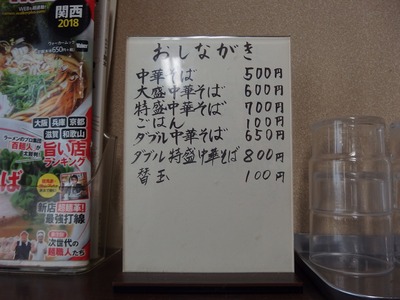 関西
2018
大阪 兵庫 京都
滋賀 和歌山
ラーメンのプロ集団
百麺人が
旨い店
ランキング
新店
最強打線
次世代の
麺職人たち
おしながき
中華そば 500円
大盛中華そば 600円
特盛中華そば 700円
ごはん 100円
ダブル中華そば 650円
ダブル特盛中華そば 800円
替玉 100円